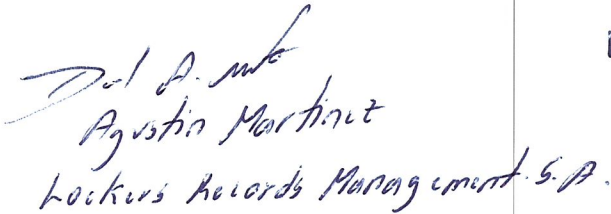 Agustin Martinez
Lockers Records Management S.A.